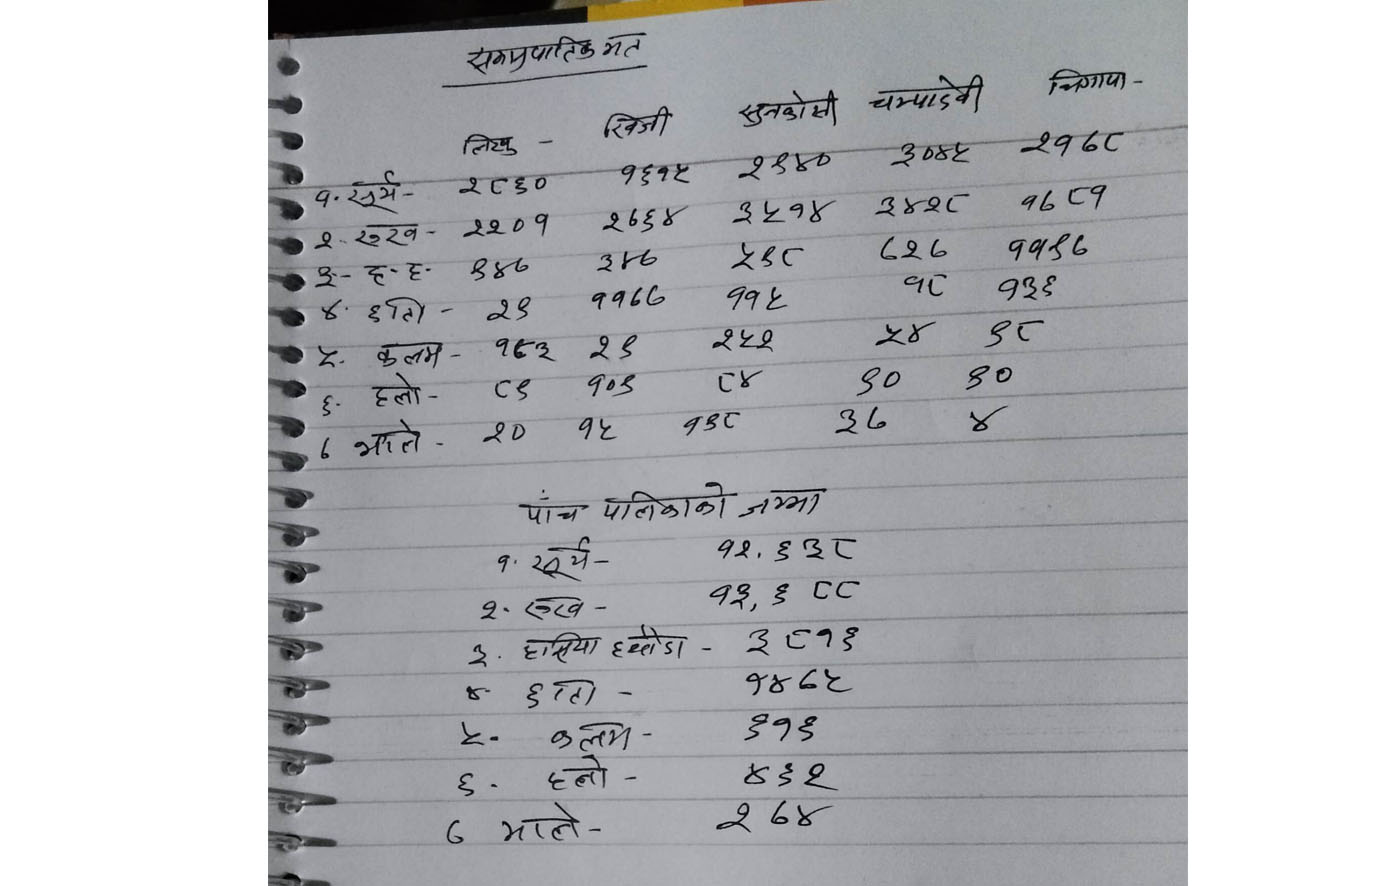 समानुपातिक मत
लिखु - खिजी सुनकोसी चम्पादेवी चिगापा -
१. सूर्य - २८६० १६१५ २९४० ३०४५ २१७८
२. रुख - २२०१ २७६४ ३५१४ ३४२८ १७८१
३ - ह. ह. ९४७ ३४७ ५९८ ७२७ ११९७
४. - २९ ११७७ ११५ १८ १३६
५. कलम - १८३ २९ २५२ ५४ ९८
६. हलो - ८९ १०९ ८४ ९० ९०
७ भाले - २० १५ १९८ ३७ ४
पांच पालिकाको जम्मा
१. सूर्य - १२,६३८
२. रुख - १३,६८८
३. हासिया हथौडा - ३८१६
४. - १४७५
५. कलम - ६१६
६. हलो - ४६२
७ भाले - २७४